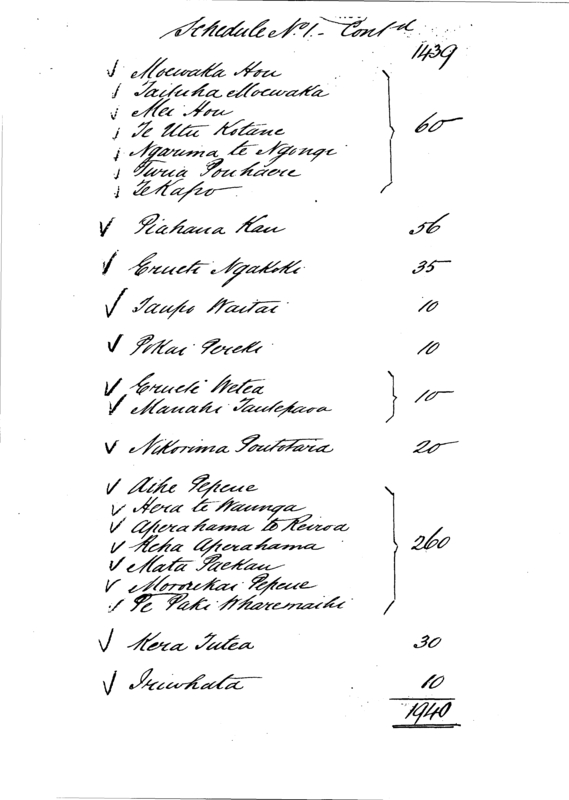 Schedule No. 1 - Cont'd
1439
Moewaka Hou
Taituha Moewaka
Mei Hou
Te Utu Kotane
Ngaruma te Ngongi
Turia Pouhaere
TeKapo
60
Piahana Kau 56
Erueti Ngakoki 35
Taupo Waitai 10
Pokai Pereki 10
Erueti Wetea
Manahi
10
Nikorima Poutotara 20
Aihe Pepene
Hera te Waunga
Aperahama te Reiroa
Reha Aperahama
Mata Paekau
Mororekai Pepene
Te Paki Wharemaihi
260
Kera Tutea 30
Iriwhata 10
1940